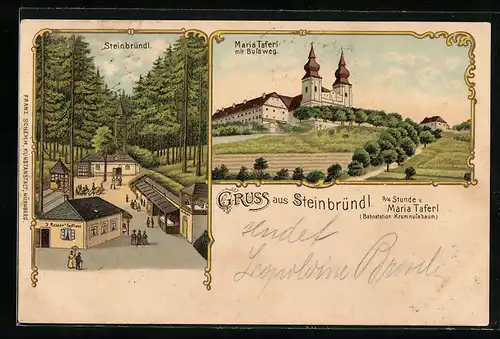 Steinbründl.
Maria Taferl
mit Bußweg.
FRANZ SCHEMM, KUNSTANSTALT, NÜRNBERG.
GRUSS aus Steinbründl.
3/4 Stunde v.
Maria Taferl
(Bahnstation Krummnußbaum)
sendet
Leopoldine